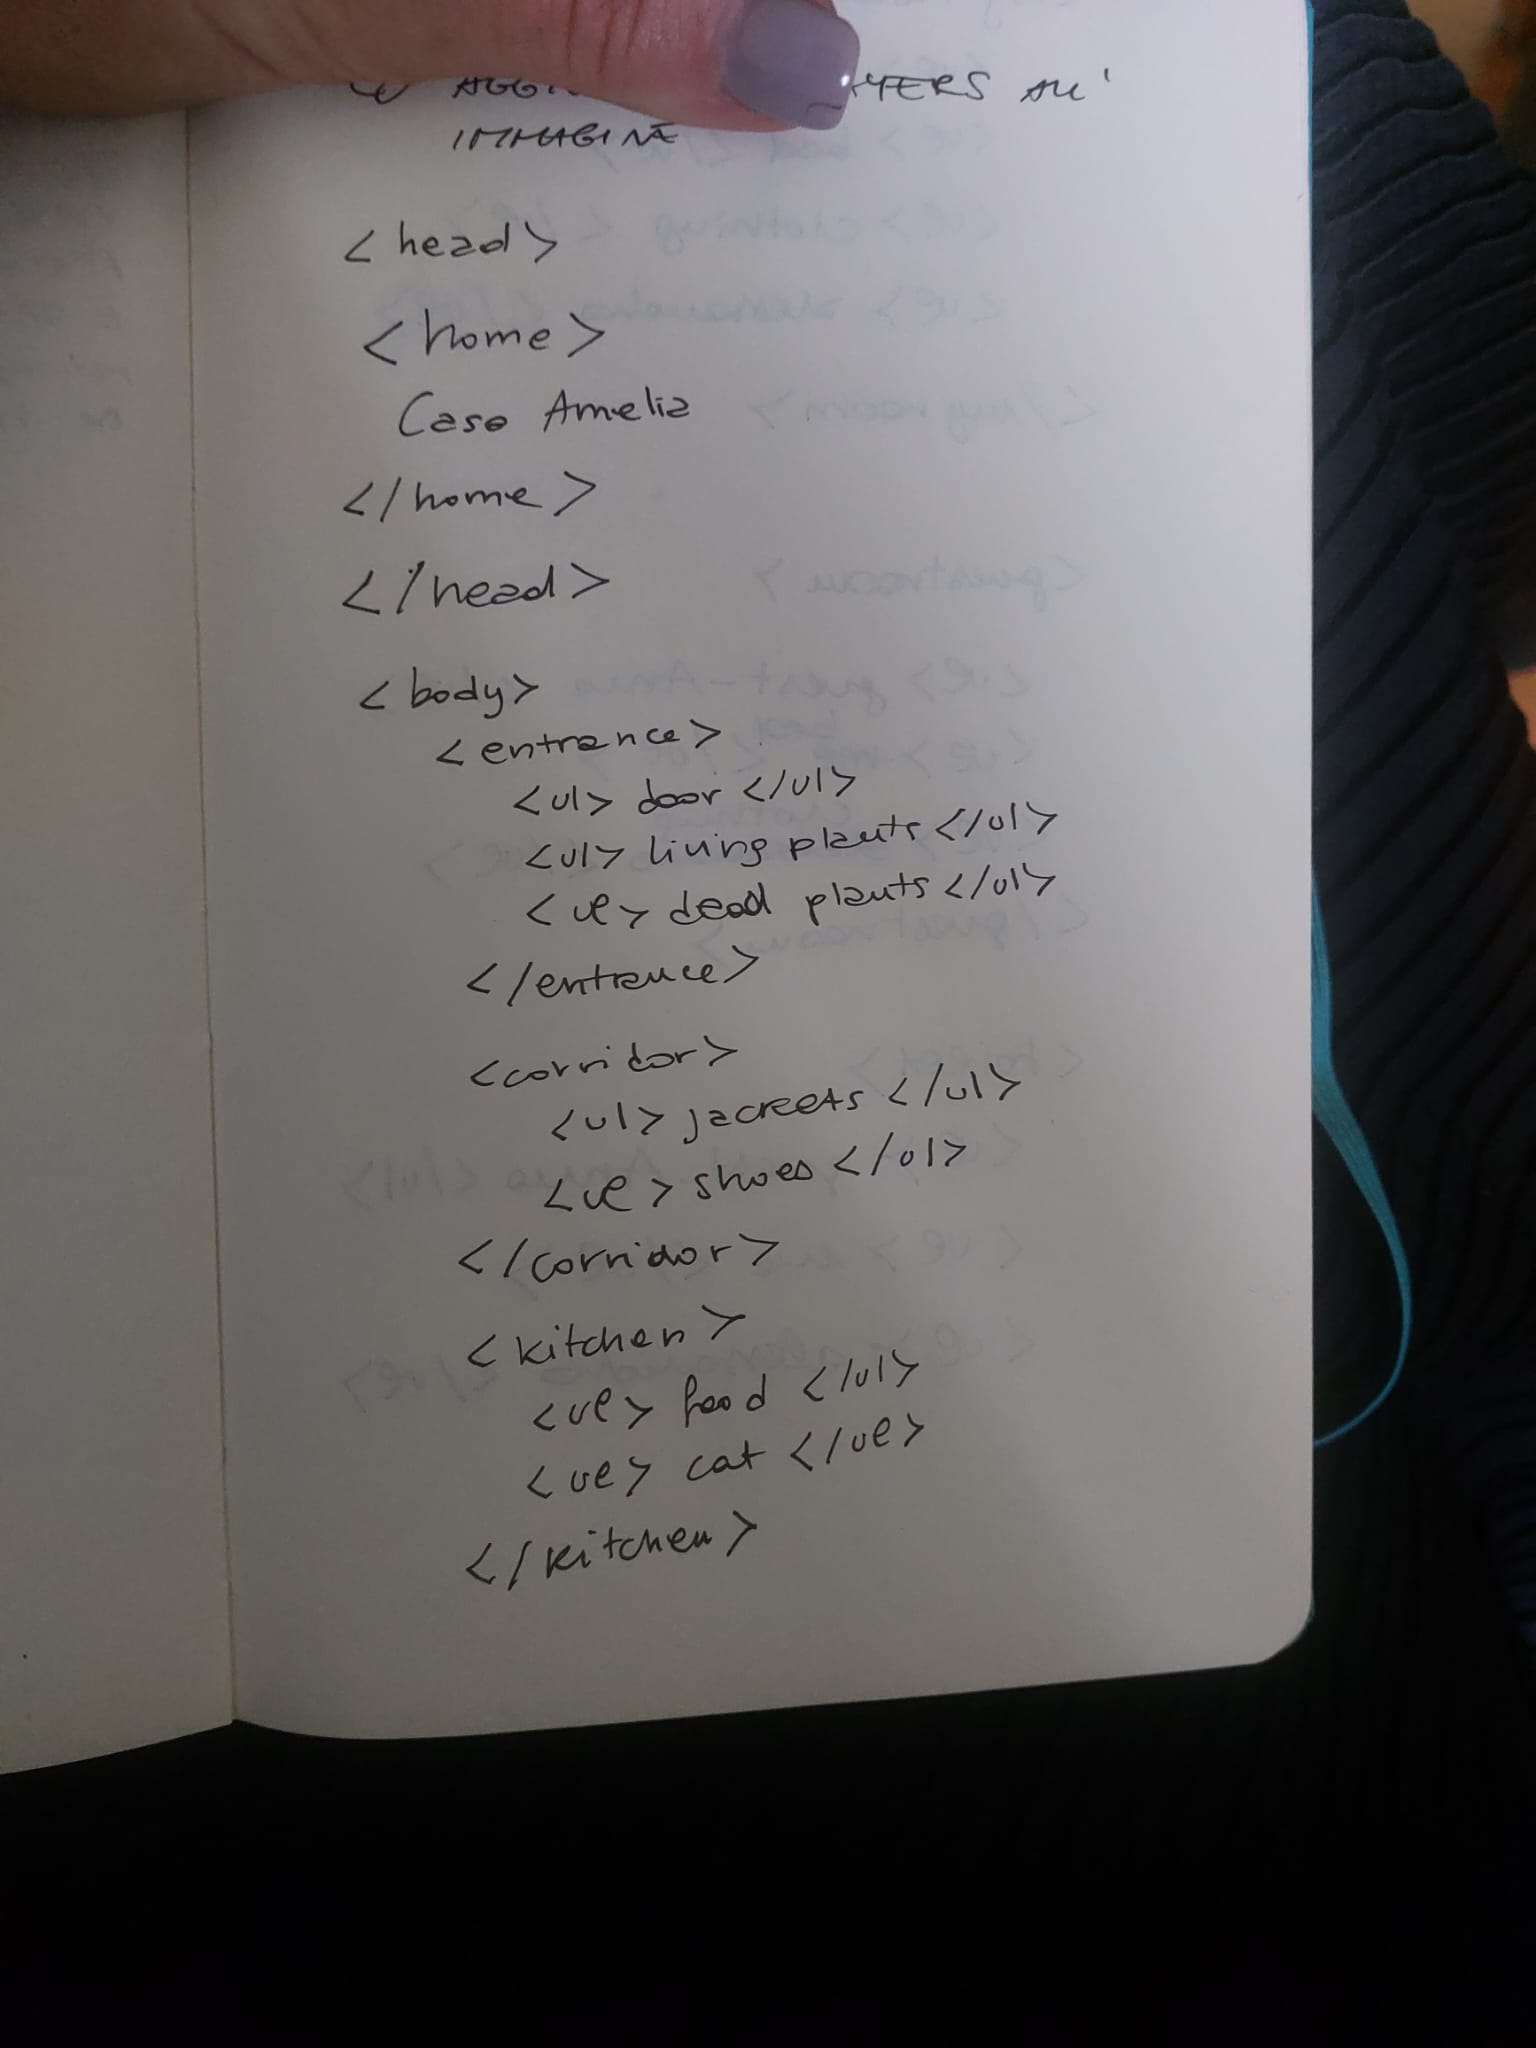 LAYERS ALL'
IMMAGINE
<head>
<home>
Casa Amelia
</home>
</head>
<body>
<entrance>
<ul> door </ul>
<ul> living plants </ul>
<ul> dead plants </ul>
</entrance>
<corridor>
<ul> jackets </ul>
<ul> shoes </ul>
</corridor>
<kitchen>
<ul> food </ul>
<ul> cat </ul>
</kitchen>